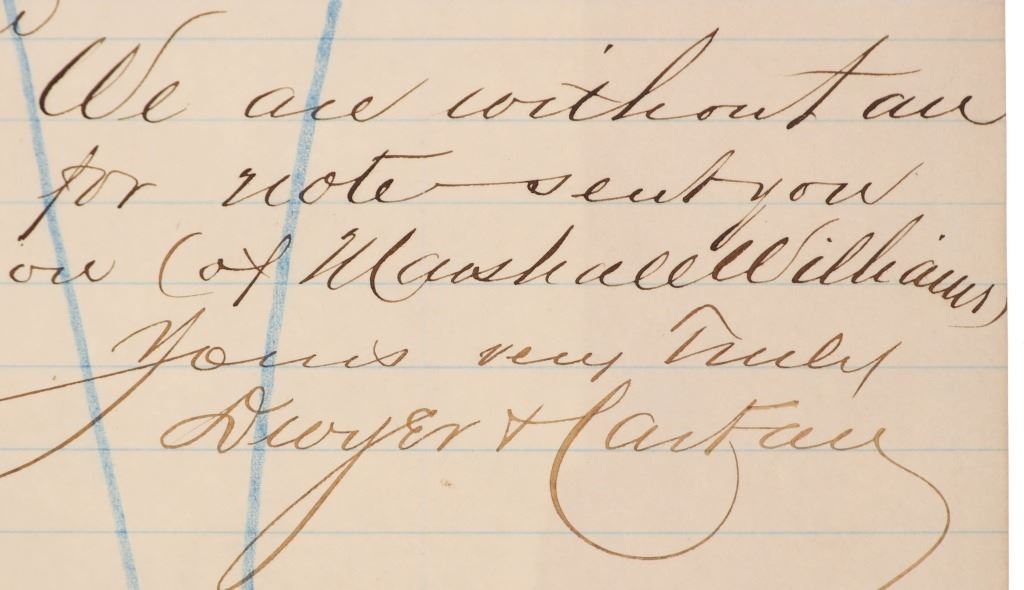 We are without an
for note sent you
on (of Marshall Williams)
Yours very Truly
Dwyer + Cartan